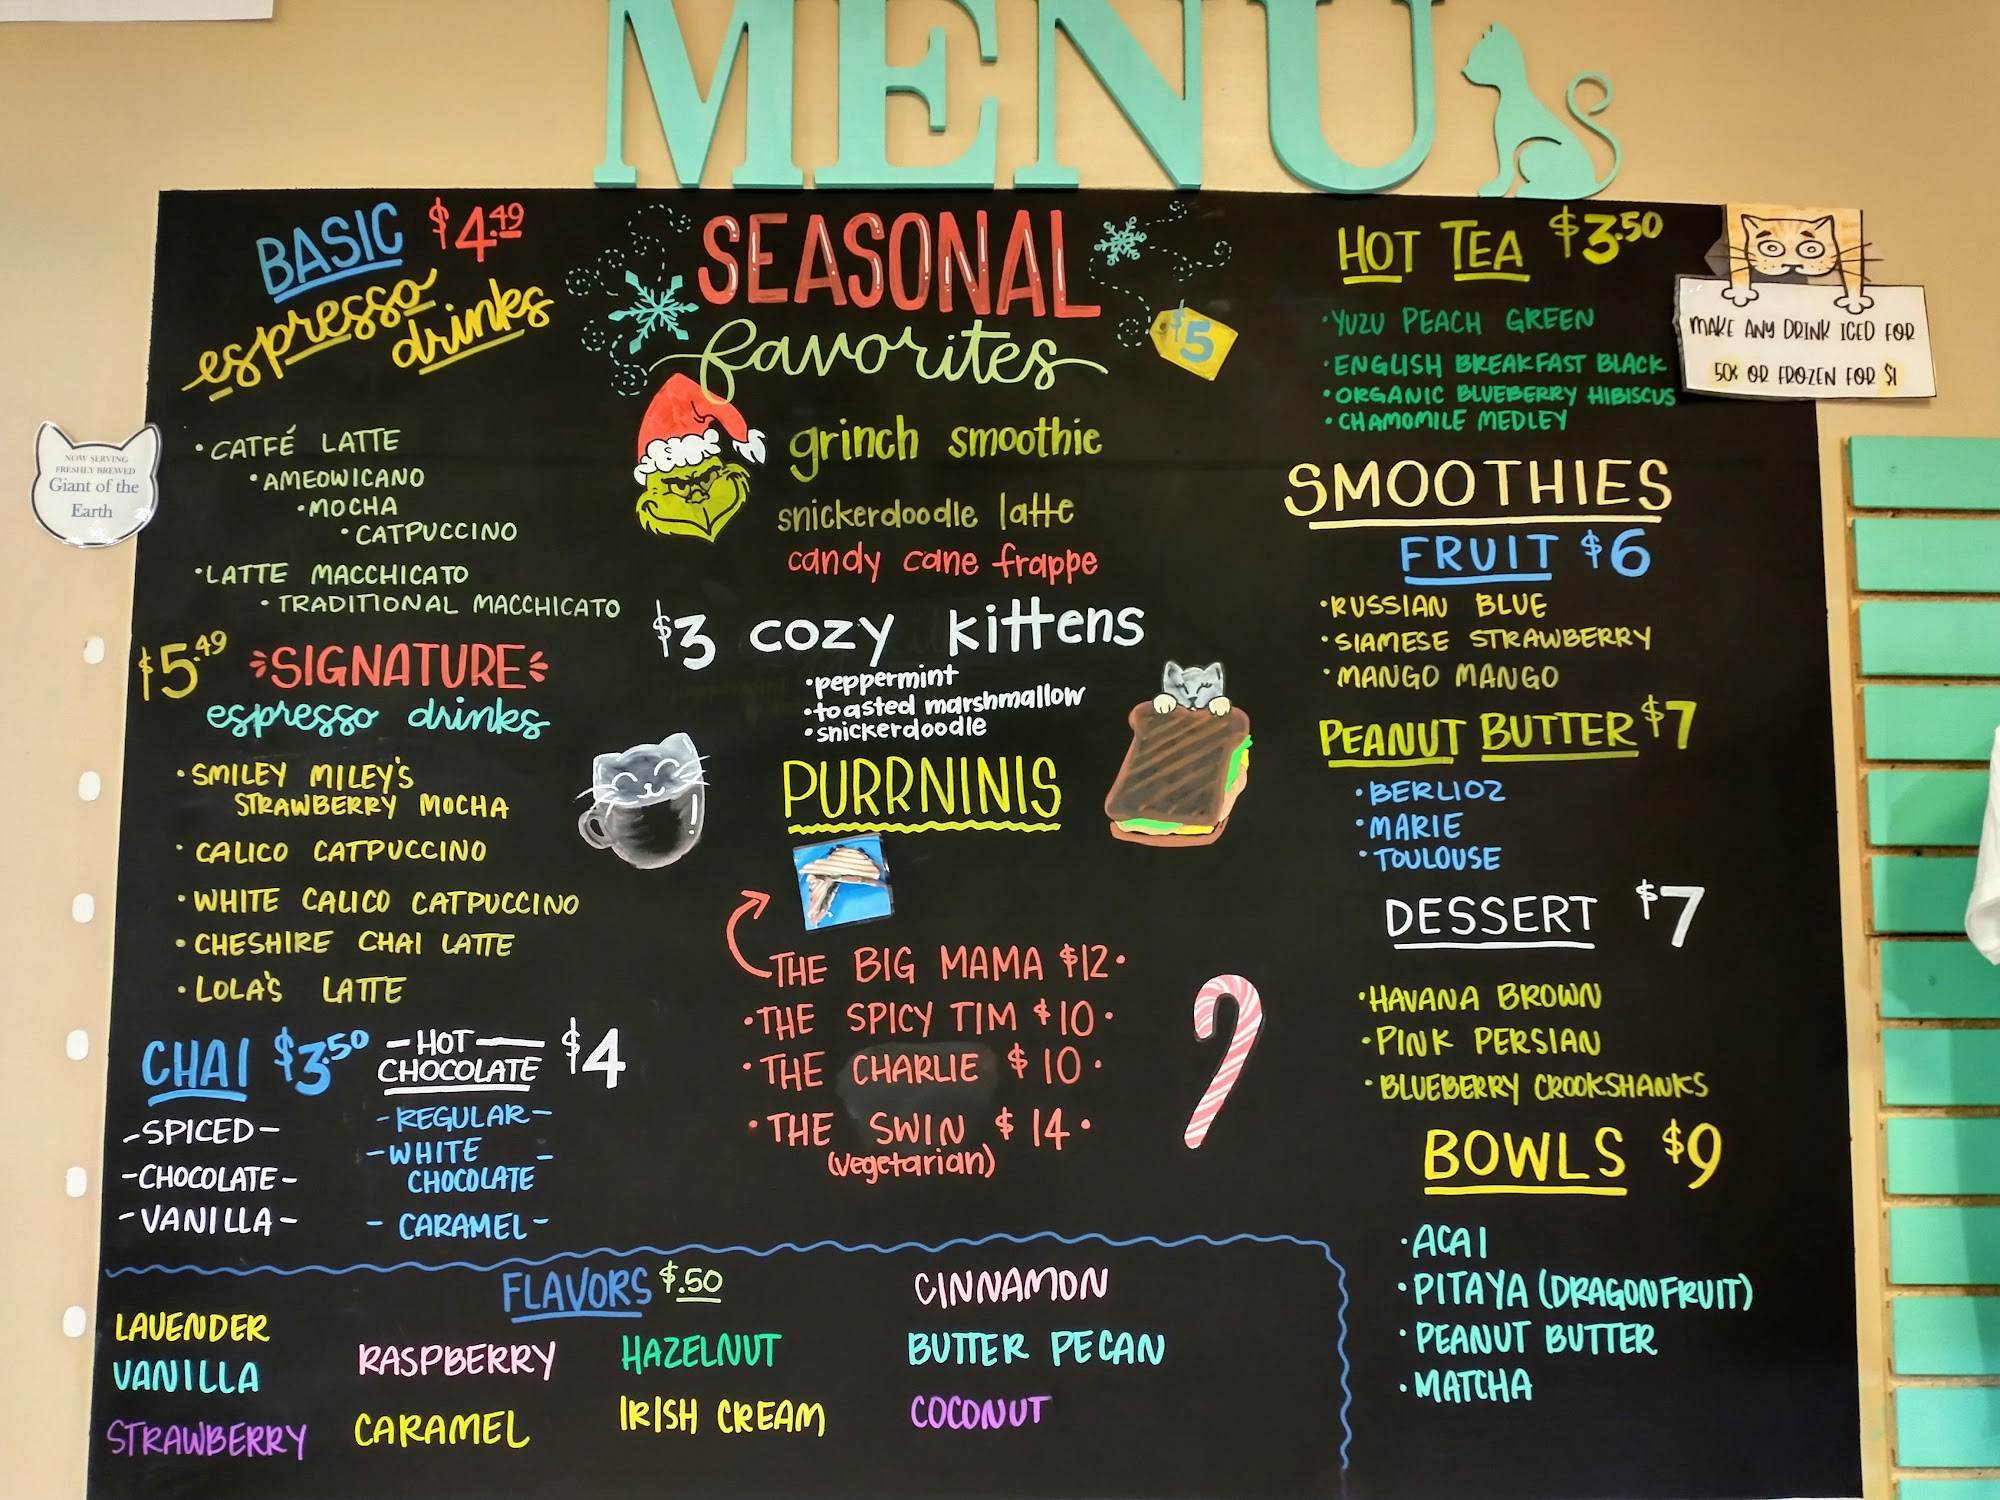 MENU
BASIC $4.49
espresso drinks
• CATFÉ LATTE
• AMEOWICANO
• MOCHA
• CATPUCCINO
• LATTE MACCHICATO
• TRADITIONAL MACCHICATO
$5.49 SIGNATURE
espresso drinks
• SMILEY MILEY'S
STRAWBERRY MOCHA
• CALICO CATPUCCINO
• WHITE CALICO CATPUCCINO
• CHESHIRE CHAI LATTE
• LOLA'S LATTE
CHAI $3.50
- SPICED -
- CHOCOLATE -
- VANILLA -
- HOT -
CHOCOLATE $4
- REGULAR -
- WHITE -
CHOCOLATE
- CARAMEL -
SEASONAL
favorites
$5
grinch smoothie
snickerdoodle latte
candy cane frappe
$3 cozy kittens
• peppermint
• toasted marshmallow
• snickerdoodle
PURRNINIS
THE BIG MAMA $12 •
• THE SPICY TIM $10 •
• THE CHARLIE $10 •
• THE SWIN $14 •
(vegetarian)
HOT TEA $3.50
• YUZU PEACH GREEN
• ENGLISH BREAKFAST BLACK
• ORGANIC BLUEBERRY HIBISCUS
• CHAMOMILE MEDLEY
SMOOTHIES
FRUIT $6
• RUSSIAN BLUE
• SIAMESE STRAWBERRY
• MANGO MANGO
PEANUT BUTTER $7
• BERLIOZ
• MARIE
• TOULOUSE
DESSERT $7
• HAVANA BROWN
• PINK PERSIAN
• BLUEBERRY CROOKSHANKS
BOWLS $9
• ACAI
• PITAYA (DRAGONFRUIT)
• PEANUT BUTTER
• MATCHA
FLAVORS $.50
LAVENDER
VANILLA
STRAWBERRY
RASPBERRY
CARAMEL
HAZELNUT
IRISH CREAM
CINNAMON
BUTTER PECAN
COCONUT
MAKE ANY DRINK ICED FOR
50¢ OR FROZEN FOR $1
NOW SERVING
FRESHLY BREWED
Giant of the
Earth